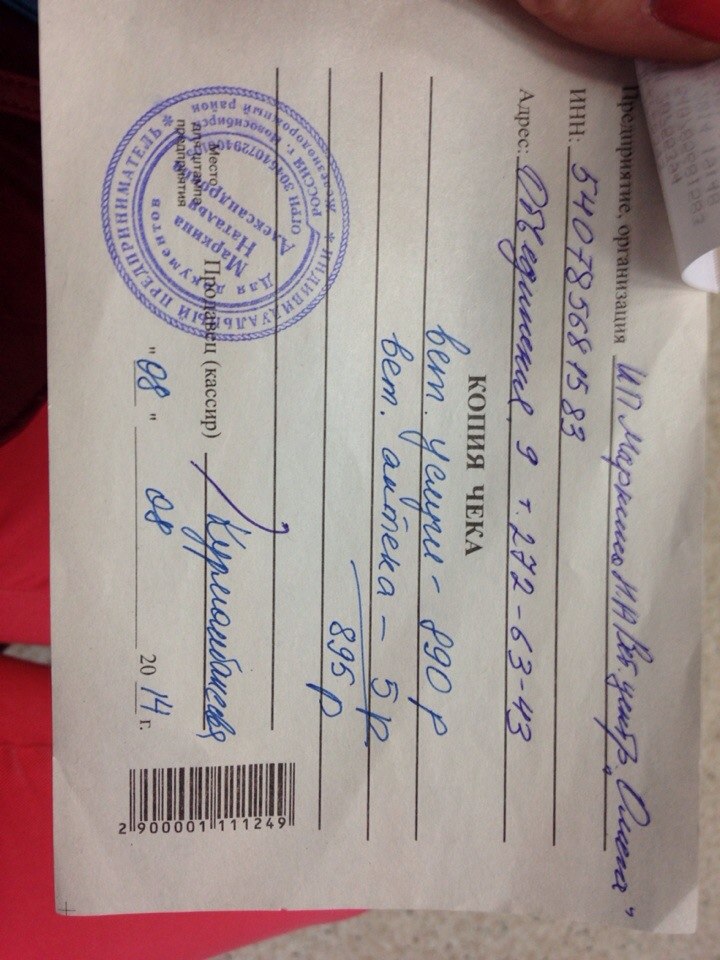 Предприятие, организация ИП Маркина НА Вет центр "Омега"
ИНН: 540785681583
Адрес: Объединения, 9 т. 272-63-43
КОПИЯ ЧЕКА
вет. услуги - 890 р
вет. аптека - 5 р
895 р
Продавец (кассир)
Место
для штампа
предприятия
"08" 08 2014 г.
2 900001 111249
* ИНДИВИДУАЛЬНЫЙ ПРЕДПРИНИМАТЕЛЬ *
Железнодорожный район
РОССИЯ г. Новосибирск
Маркина
Наталья
Александровна
Для документов